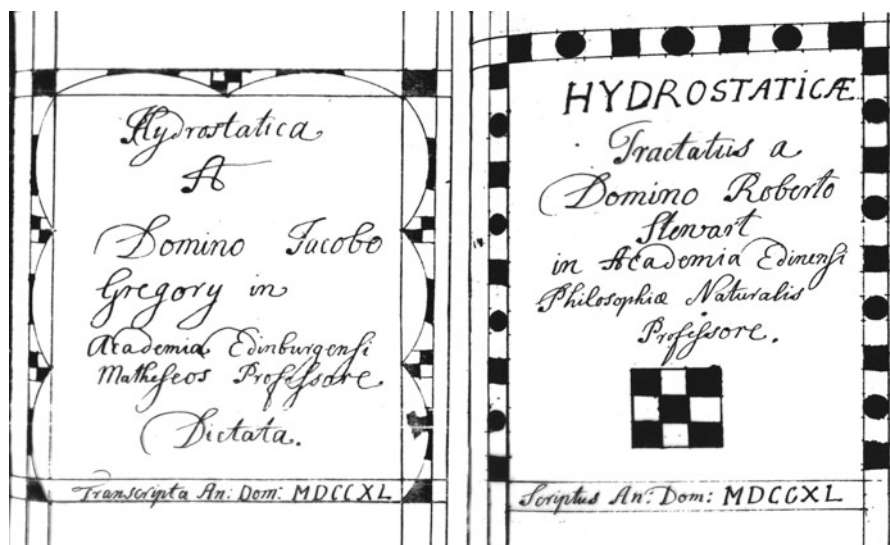 Hydrostatica
A
Domino Jacobo
Gregory in
Academia Edinburgensi
Matheseos Professore
Dictata.
Transcripta An: Dom: MDCCXL
HYDROSTATICÆ
Tractatus a
Domino Roberto
Stewart
in Academia Edinensi
Philosophiæ Naturalis
Professore.
Scriptus An: Dom: MDCCXL